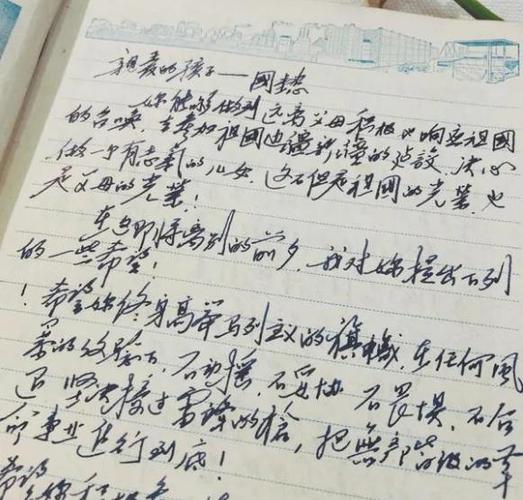 亲爱的孩子——國慧
你能够做到远离父母积极地响应祖国
的召唤，去参加祖國边疆新疆的建設，决心
做一个有志氣的儿女，这不但是祖國的光荣，也
是父母的光荣！
在这即将离别的前夕，我对你提出下列
的一些希望！
1 希望你终身高举马列主义的旗帜，在任何风
暴的效驗下，不动摇，不妥协，不畏惧，不后
退，坚决接过雷锋的槍，把無产階级的革
命事业进行到底！
希望你积极